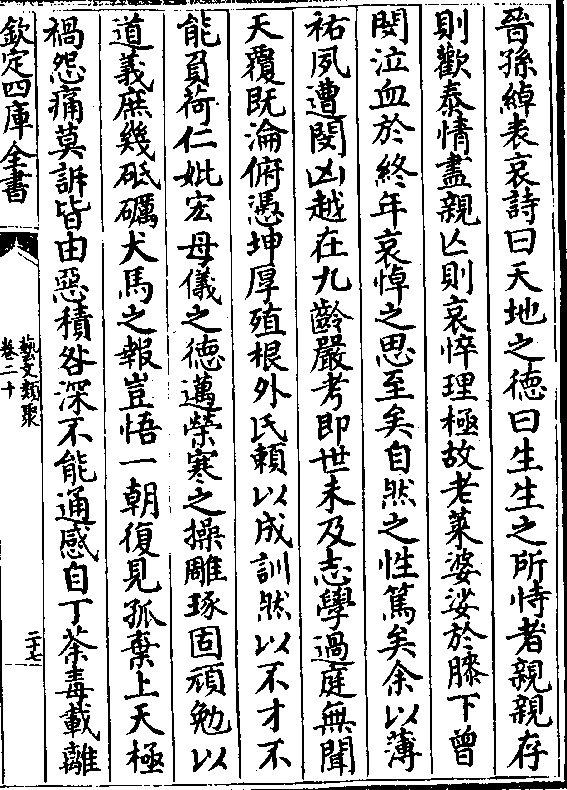 晉孫綽表哀詩曰天地之德曰生生之所恃者親親存
則歡泰情盡親亡則哀悴理極故老萊婆娑於膝下曾
閔泣血於終年哀悼之思至矣自然之性篤矣余以薄
祐夙遭閔凶越在九齡嚴考即世未及志學過庭無聞
天覆既淪俯憑坤厚殖根外氏賴以成訓然以不才不
能負荷仁妣宏母儀之德邁榮寒之操雕琢固頑勉以
道義庶幾砥礪犬馬之報豈悟一朝復見孤棄上天極
禍怨痛莫訴皆由惡積咎深不能通感自丁荼毒載離
欽定四庫全書
藝文類聚
卷二十
二十七